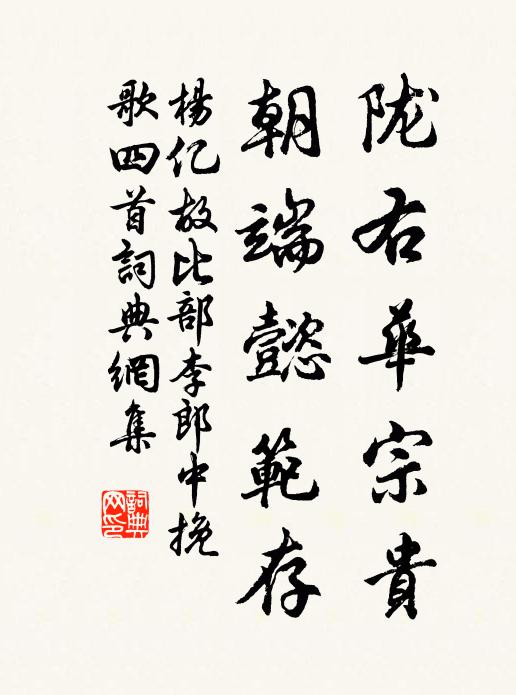 陇右華宗貴
朝端懿範存
楊亿故比部李郎中挽
歌四首詞典網集
詞典网印